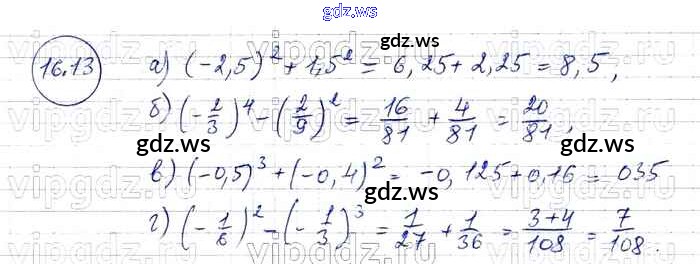 gdz.ws
gdz.ws
16.13
а) (-2,5)² + 1,5² = 6,25 + 2,25 = 8,5,
б) (-2/3)⁴ - (2/9)² = 16/81 + 4/81 = 20/81,
gdz.ws
в) (-0,5)³ + (-0,4)² = -0,125 + 0,16 = 035
gdz.ws
г) (-1/6)² - (-1/3)³ = 1/27 + 1/36 = 3+4/108 = 7/108.
gdz.ws